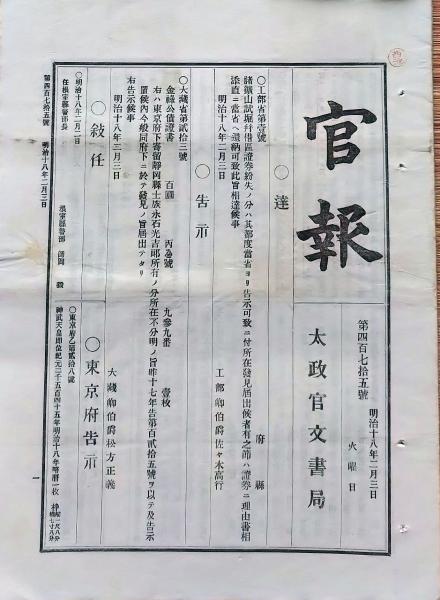 官報
第四百七拾五號
明治十八年二月三日
火曜日
太政官文書局
○達
○工部省第壹號
府縣
諸鑛山試堀幷借區證券紛失ノ分ハ其都度當省ヨリ告示可致ニ付所在發見屆出候者有之節ハ證券ニ理由書相
添直ニ當省ヘ還納可致此旨相達候事
明治十八年二月三日
工部卿伯爵佐々木高行
○告示
○大藏省第貳拾三號
金祿公債證書 百圓 丙い號 九參九番 壹枚
右ハ東京府下寄留靜岡縣士族永石光吉郎所有ノ分所在不分明ノ旨昨十七年告第百貳拾五號ヲ以テ及告示
置候內今般同府下ニ於テ發見ノ旨屆出テタリ
右告示候事
明治十八年二月三日
大藏卿伯爵松方正義
○敍任
○明治十八年二月二日
任根室縣警部長
根室縣警部
○東京府告示
○東京府乙第貳拾八號
神武天皇卽位紀元二千五百四十五年明治十八年略曆一枚
第四百七拾五號 明治十八年二月三日
一